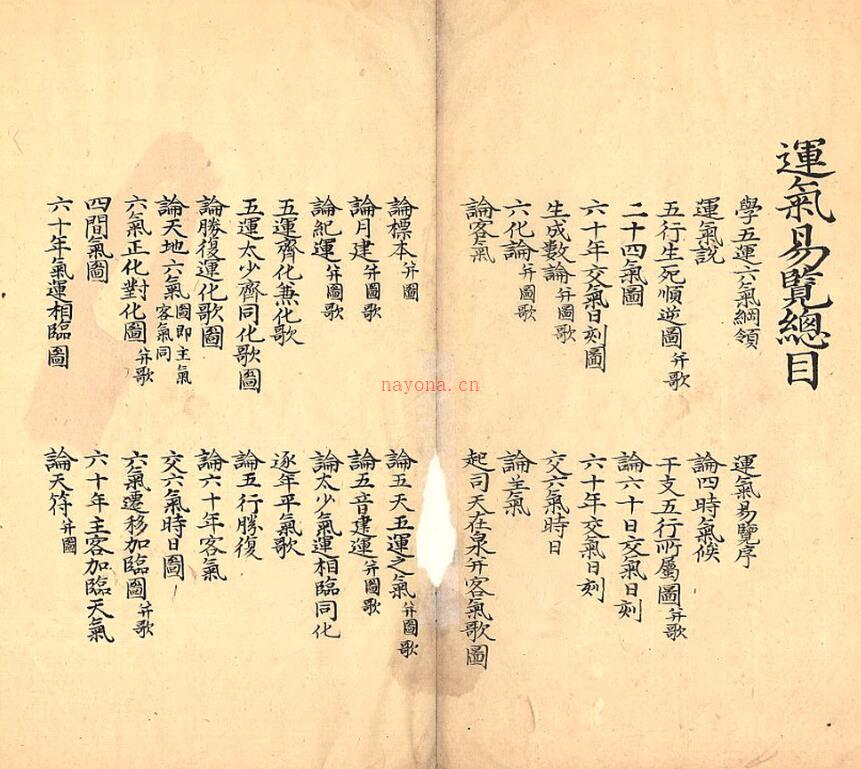 運氣易覽總目
學五運六氣綱領
運氣易覽序
運氣說
論四時氣候
五行生死順逆圖并歌
干支五行所屬圖并歌
二十四氣圖
論六十日交氣日刻
六十年交氣日刻圖
六十年交氣日刻
生成數論并圖歌
交六氣時日
六化論并圖歌
論主氣
論客氣
起司天在泉并客氣歌圖
論標本并圖
論五天五運之氣并圖歌
論月建并圖歌
論五音建運并圖歌
論紀運并圖歌
論太少氣運相臨同化
五運齊化兼化歌
逐年平氣歌
五運太少齊同化歌圖
論五行勝復
論勝復運化歌圖
論六十年客氣
論天地六氣圖即主氣客氣同
交六氣時日圖
六氣正化對化圖并歌
六氣遷移加臨圖并歌
四間氣圖
六十年主客加臨天氣
六十年氣運相臨圖
論天符并圖
nayona.cn